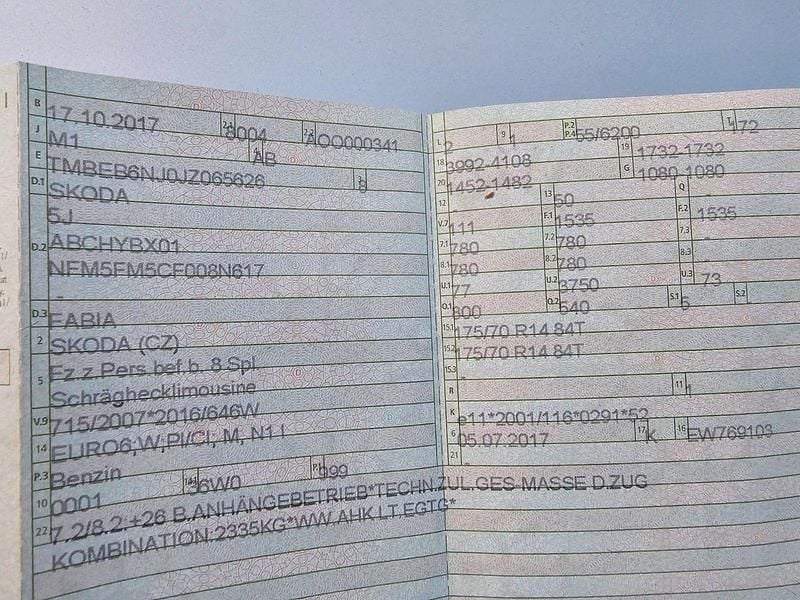 B 17.10.2017 2.1 8004 2.2 AOO000341
J M1 4 AB
E TMBEB6NJ0JZ065626 3 8
D.1 SKODA
5J
D.2 ABCHYBX01
NFM5FM5CF008N617
-
D.3 FABIA
2 SKODA (CZ)
5 Fz.z.Pers.bef.b. 8 Spl.
Schräghecklimousine
V.9 715/2007*2016/646W
14 EURO6;W;PI/CI; M, N1 I
P.3 Benzin 14.1 36W0 P.1 999
10 0001
22 7.2/8.2:+26 B.ANHÄNGEBETRIEB*TECHN.ZUL.GES.MASSE D.ZUG
KOMBINATION:2335KG*WW.AHK LT.EGTG*
L 2 9 1 P.2 P.4 55/6200 T 172
18 3992-4108 19 1732-1732
20 1452-1482 G 1080-1080
12 - 13 50 Q
V.7 111 F.1 1535 F.2 1535
7.1 780 7.2 780 7.3
8.1 780 8.2 780 8.3
U.1 77 U.2 3750 U.3 73
O.1 800 O.2 540 S.1 5 S.2
15.1 175/70 R14 84T
15.2 175/70 R14 84T
15.3
R 11
K e11*2001/116*0291*52
6 05.07.2017 17 K 16 EW769103
21